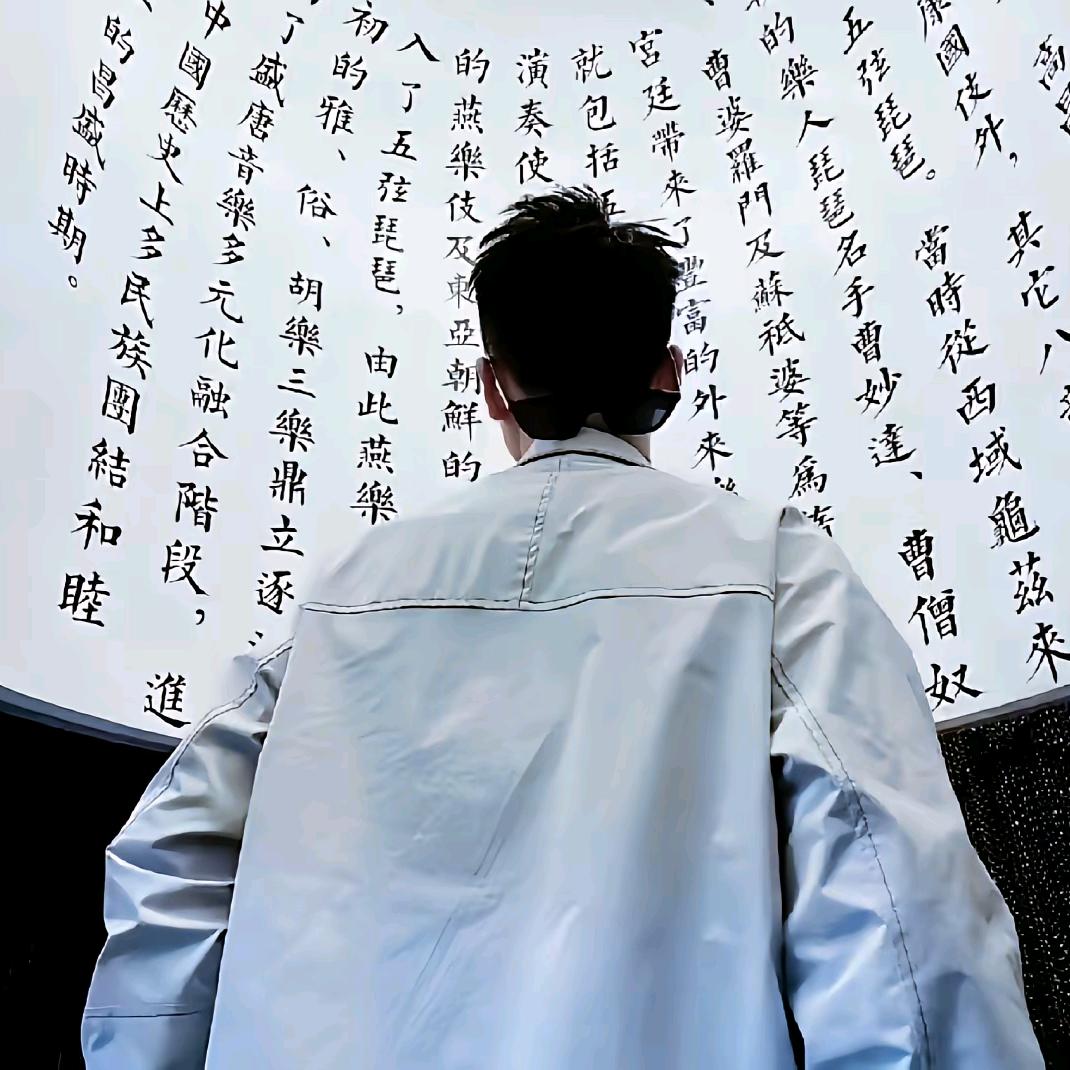 高
康國伎外，其它八
五弦琵琶。當時從西域龜茲來
的樂人琵琶名手曹妙達、曹僧奴
曹婆羅門及蘇祗婆等爲
宮廷帶來了豐富的外來
就包括五
演奏使
的燕樂伎及東亞朝鮮的
入了五弦琵琶，由此燕樂
初的雅、俗、胡樂三樂鼎立逐
了盛唐音樂多元化融合階段，進
中國歷史上多民族團結和睦
的昌盛時期。